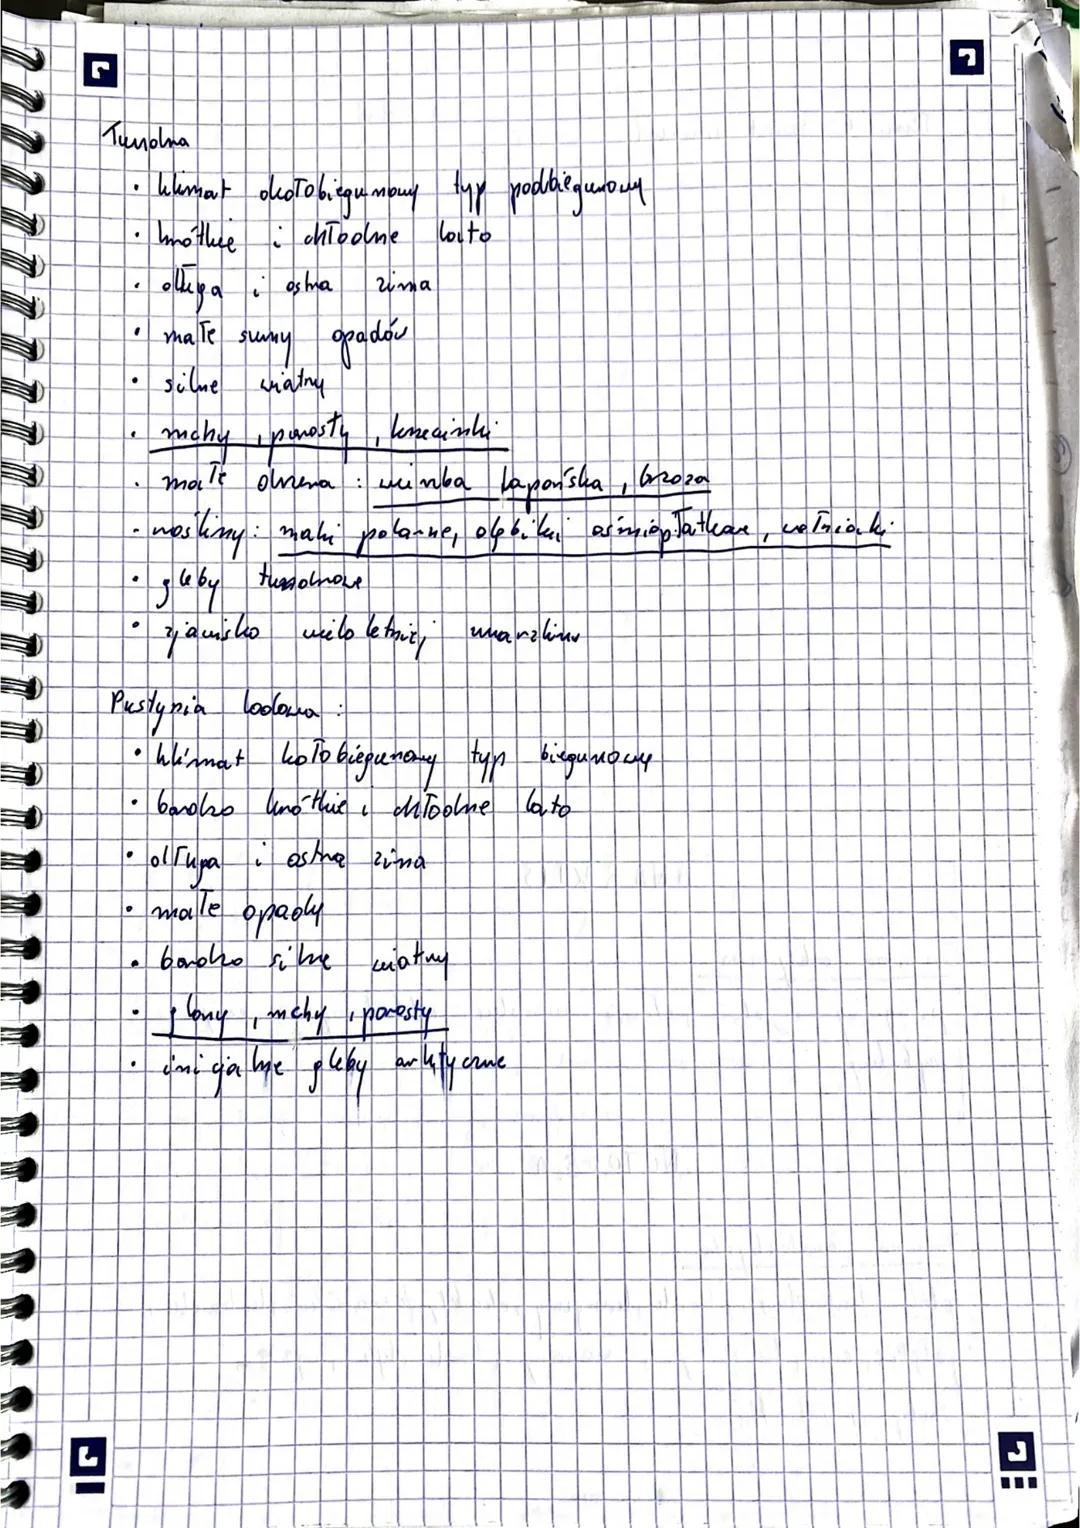 Tundra
• klimat okołobiegunowy typ podbiegunowy
• krótkie i chłodne lato
• długa i ostra zima
• małe sumy opadów
• silne wiatry
• mchy, porosty, krzewinki
• małe drzewa: wierzba lapońska, brzoza
• rośliny: maki polarne, dębiki ośmiopłatkowe, wełnianki
• gleby tundrowe
• zjawisko wieloletniej zmarzliny
Pustynia lodowa:
• klimat kołobiegunowy typ biegunowy
• bardzo krótkie i chłodne lato
• długa i ostra zima
• małe opady
• bardzo silne wiatry
• glony, mchy, porosty
• inicjalne gleby arktyczne